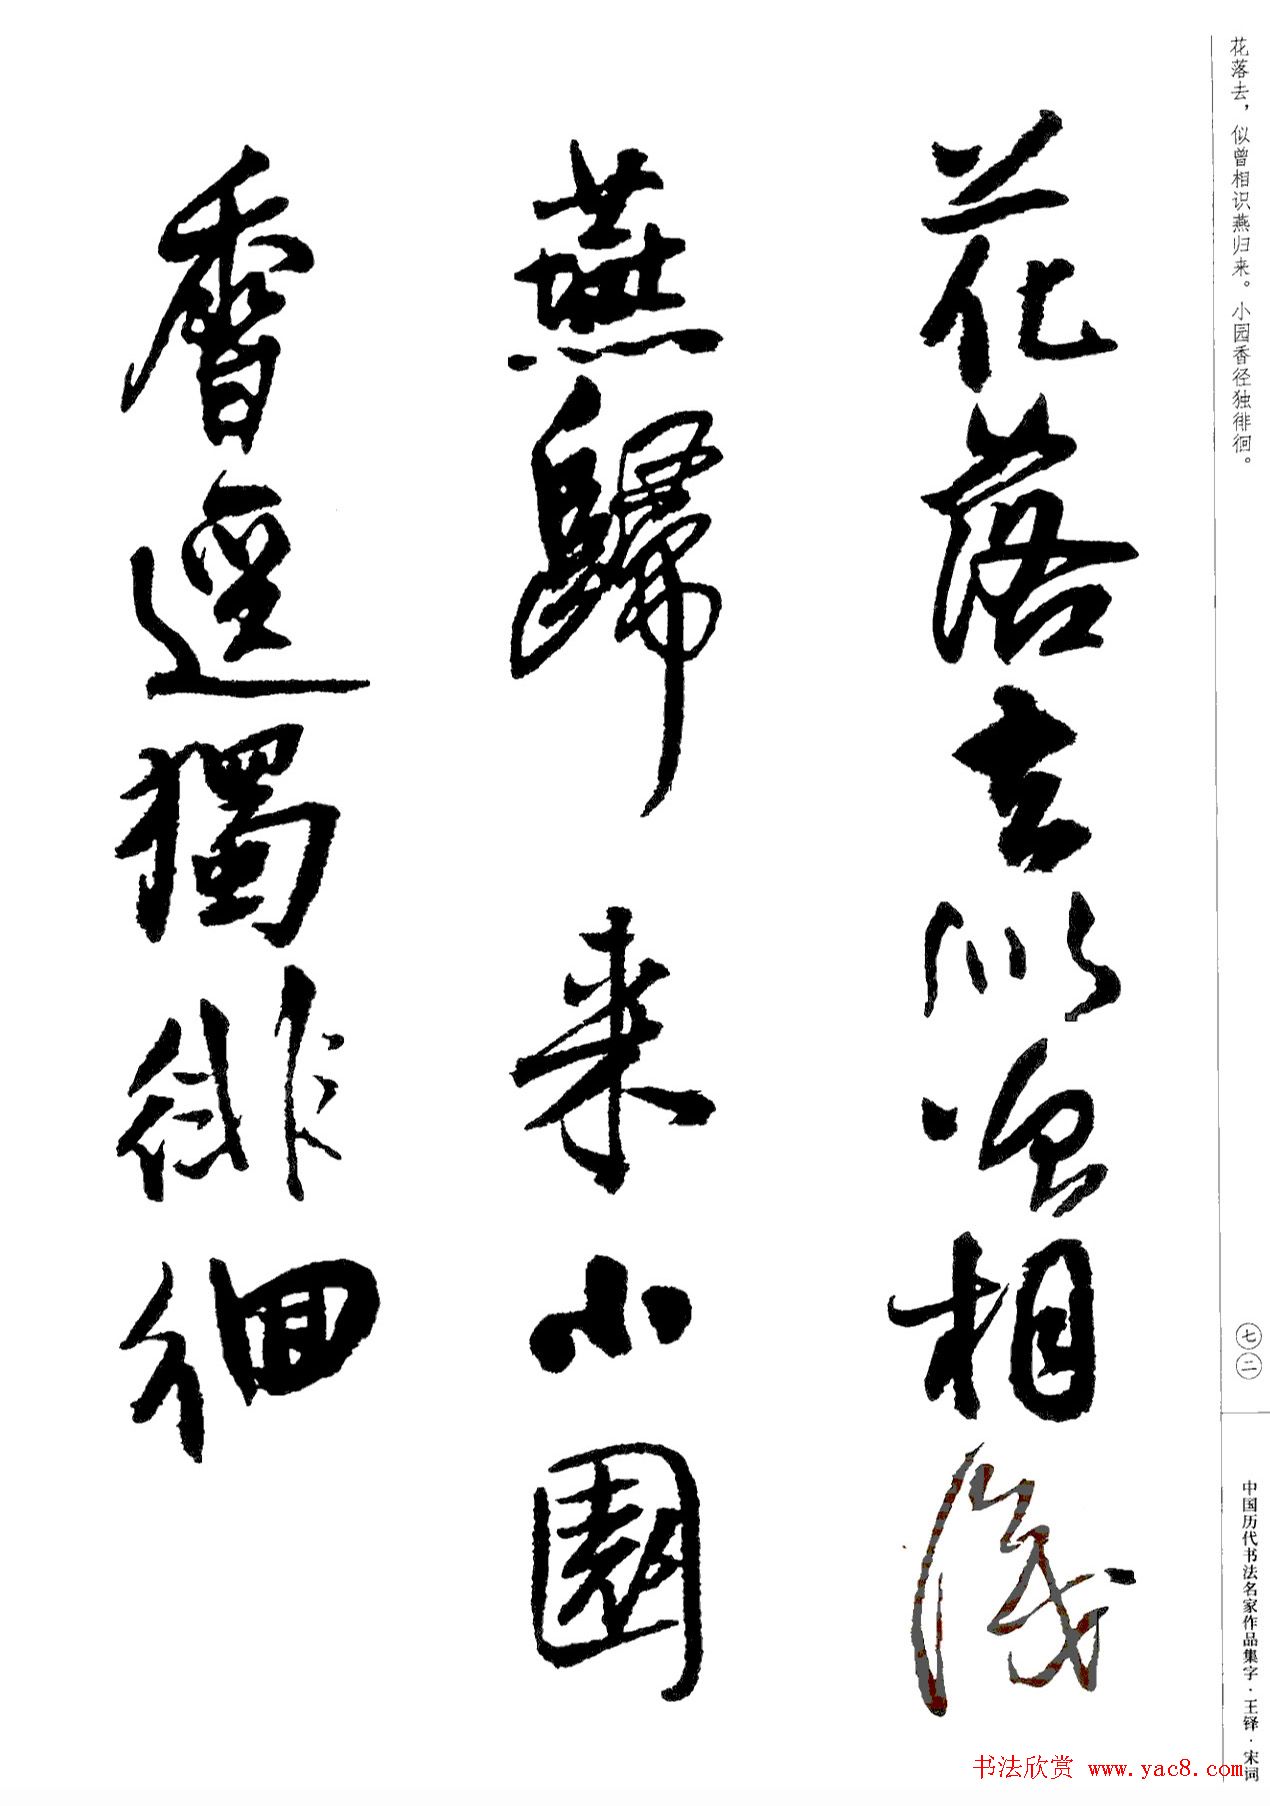 花落去，似曾相识燕归来。小园香径独徘徊。
花落去似曾相識
燕歸来小園
香逕獨徘徊
七二
中国历代书法名家作品集字·王铎·宋词
书法欣赏 www.yac8.com